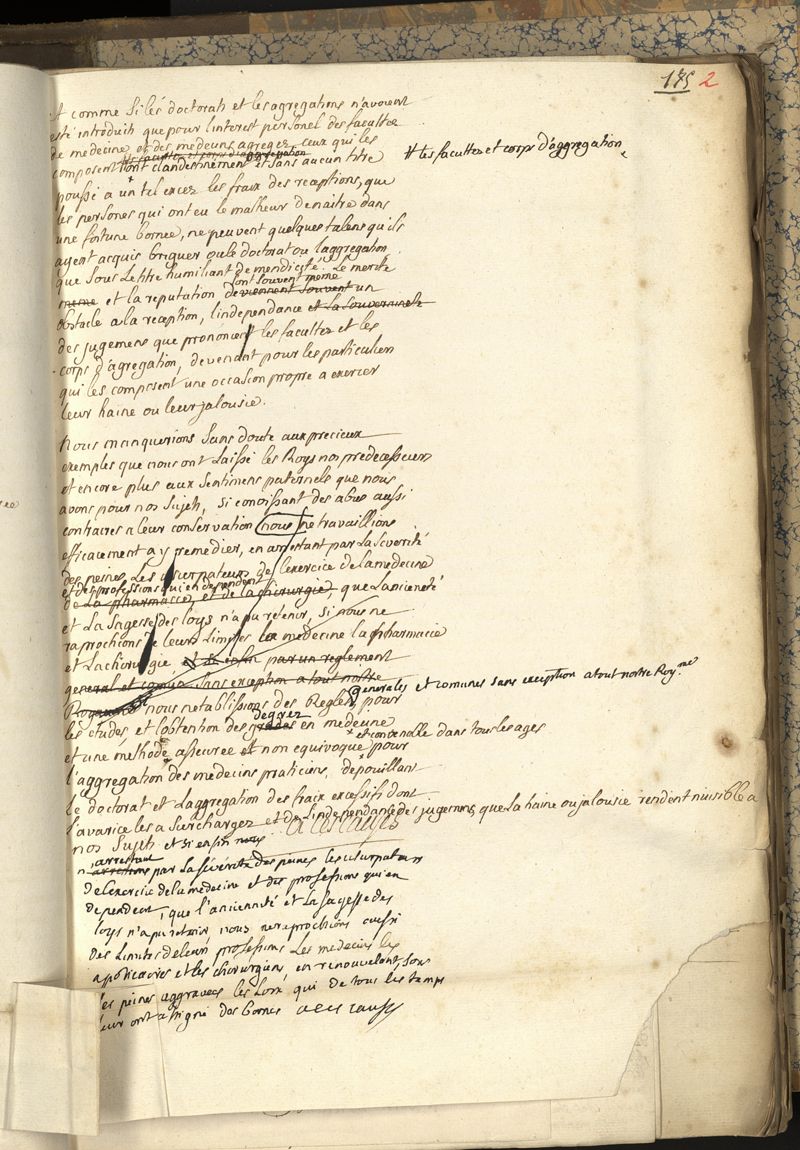 175 2
et comme si les doctorats et les agregations n'avoient
esté introduit que pour linterest personel des facultez
de medecine et des medecins agregez, ceux qui les
les facultez et corps d'aggregation
composent ont clandestinement et sans aucun titre # les facultez et corps d'aggregation
poussé a un tel excez les fraix des receptions, que
les persones qui ont eu le malheur de naitre dans
une fortune bornée, ne peuvent quelques talens qu'ils
ayent acquis briguer ou le doctorat ou l'aggregation
que sous le titre humiliant de mendicité. Le merite
sont souvent meme
meme et la reputation deviennent souvent un
obstacle a la reception, l'independance et la souveraineté
des jugemens que prononcent les facultez et les
corps d'agregation, devenant pour les particuliers
qui les composent une occasion propre a exercer
leur haine ou leur jalousie.
Nous manquerions sans doute aux precieux
exemples que nous ont laissé les Roys nos predecesseurs
et encore plus aux sentimens paternels que nous
avons pour nos sujets, si conoissant des abus aussi
contraires a leur conservation nous ne travaillions
efficacement a y remedier, en arrestant par la severité
des peines, les usurpateurs de l'exercice de la medecine
et des professions qui en dependent
de la pharmacie, et de la chirurgie, que l'ancieneté
et la sagesse des loys n'a pu retenir, si nous ne
raprochions de leurs limites la medecine la pharmacie
et la chirurgie et si enfin par un reglement
general et comun sans exception a tout nostre
Royaume nous n'etablissions des Regles generales et comunes sans exception a tout notre Roy.me pour
degrez
les études, et l'obtention des grades en medecine
et une méthode asseurée et non equivoque et convenable dans tous les ages pour
l'aggregation des medecins praticiens, depouillant
le doctorat et l'aggregation des fraix excessifs dont
l'avarice les a surchargez et de l'independance des jugemens, que la haine ou jalousie rendent nuisible a
nos sujets et si enfin nous A ces causes
arrestant
n'arretions par la sévérité des peines les usurpateurs
de l'exercice de la medecine et des professions qui en
dependent, que l'ancienneté et la sagesse des
loys n'a pu retenir, nous ne raprochions aussi
des limites de leurs professions les medecins les
apoticaires et les chirurgiens, en renouvelant, sous
les peines aggravées les loix qui de tous les tems
leur ont assigné des bornes a ces causes